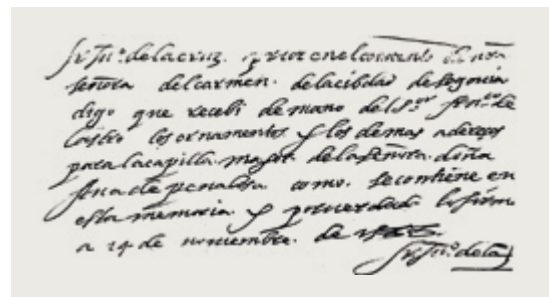 fr Ju.º de la cruz. prior en el convento de nra
señora del carmen. de la cibdad de segovia
digo que recebi de mano del S.ºr Ant.º de
Castro los ornamentos y los demas adereços
para la capilla. mayor de la señora. doña
Ana de penalosa como. se contiene en
esta memoria. y por verdad lo firme
a 14 de noviembre. de
fr Ju.º de la +